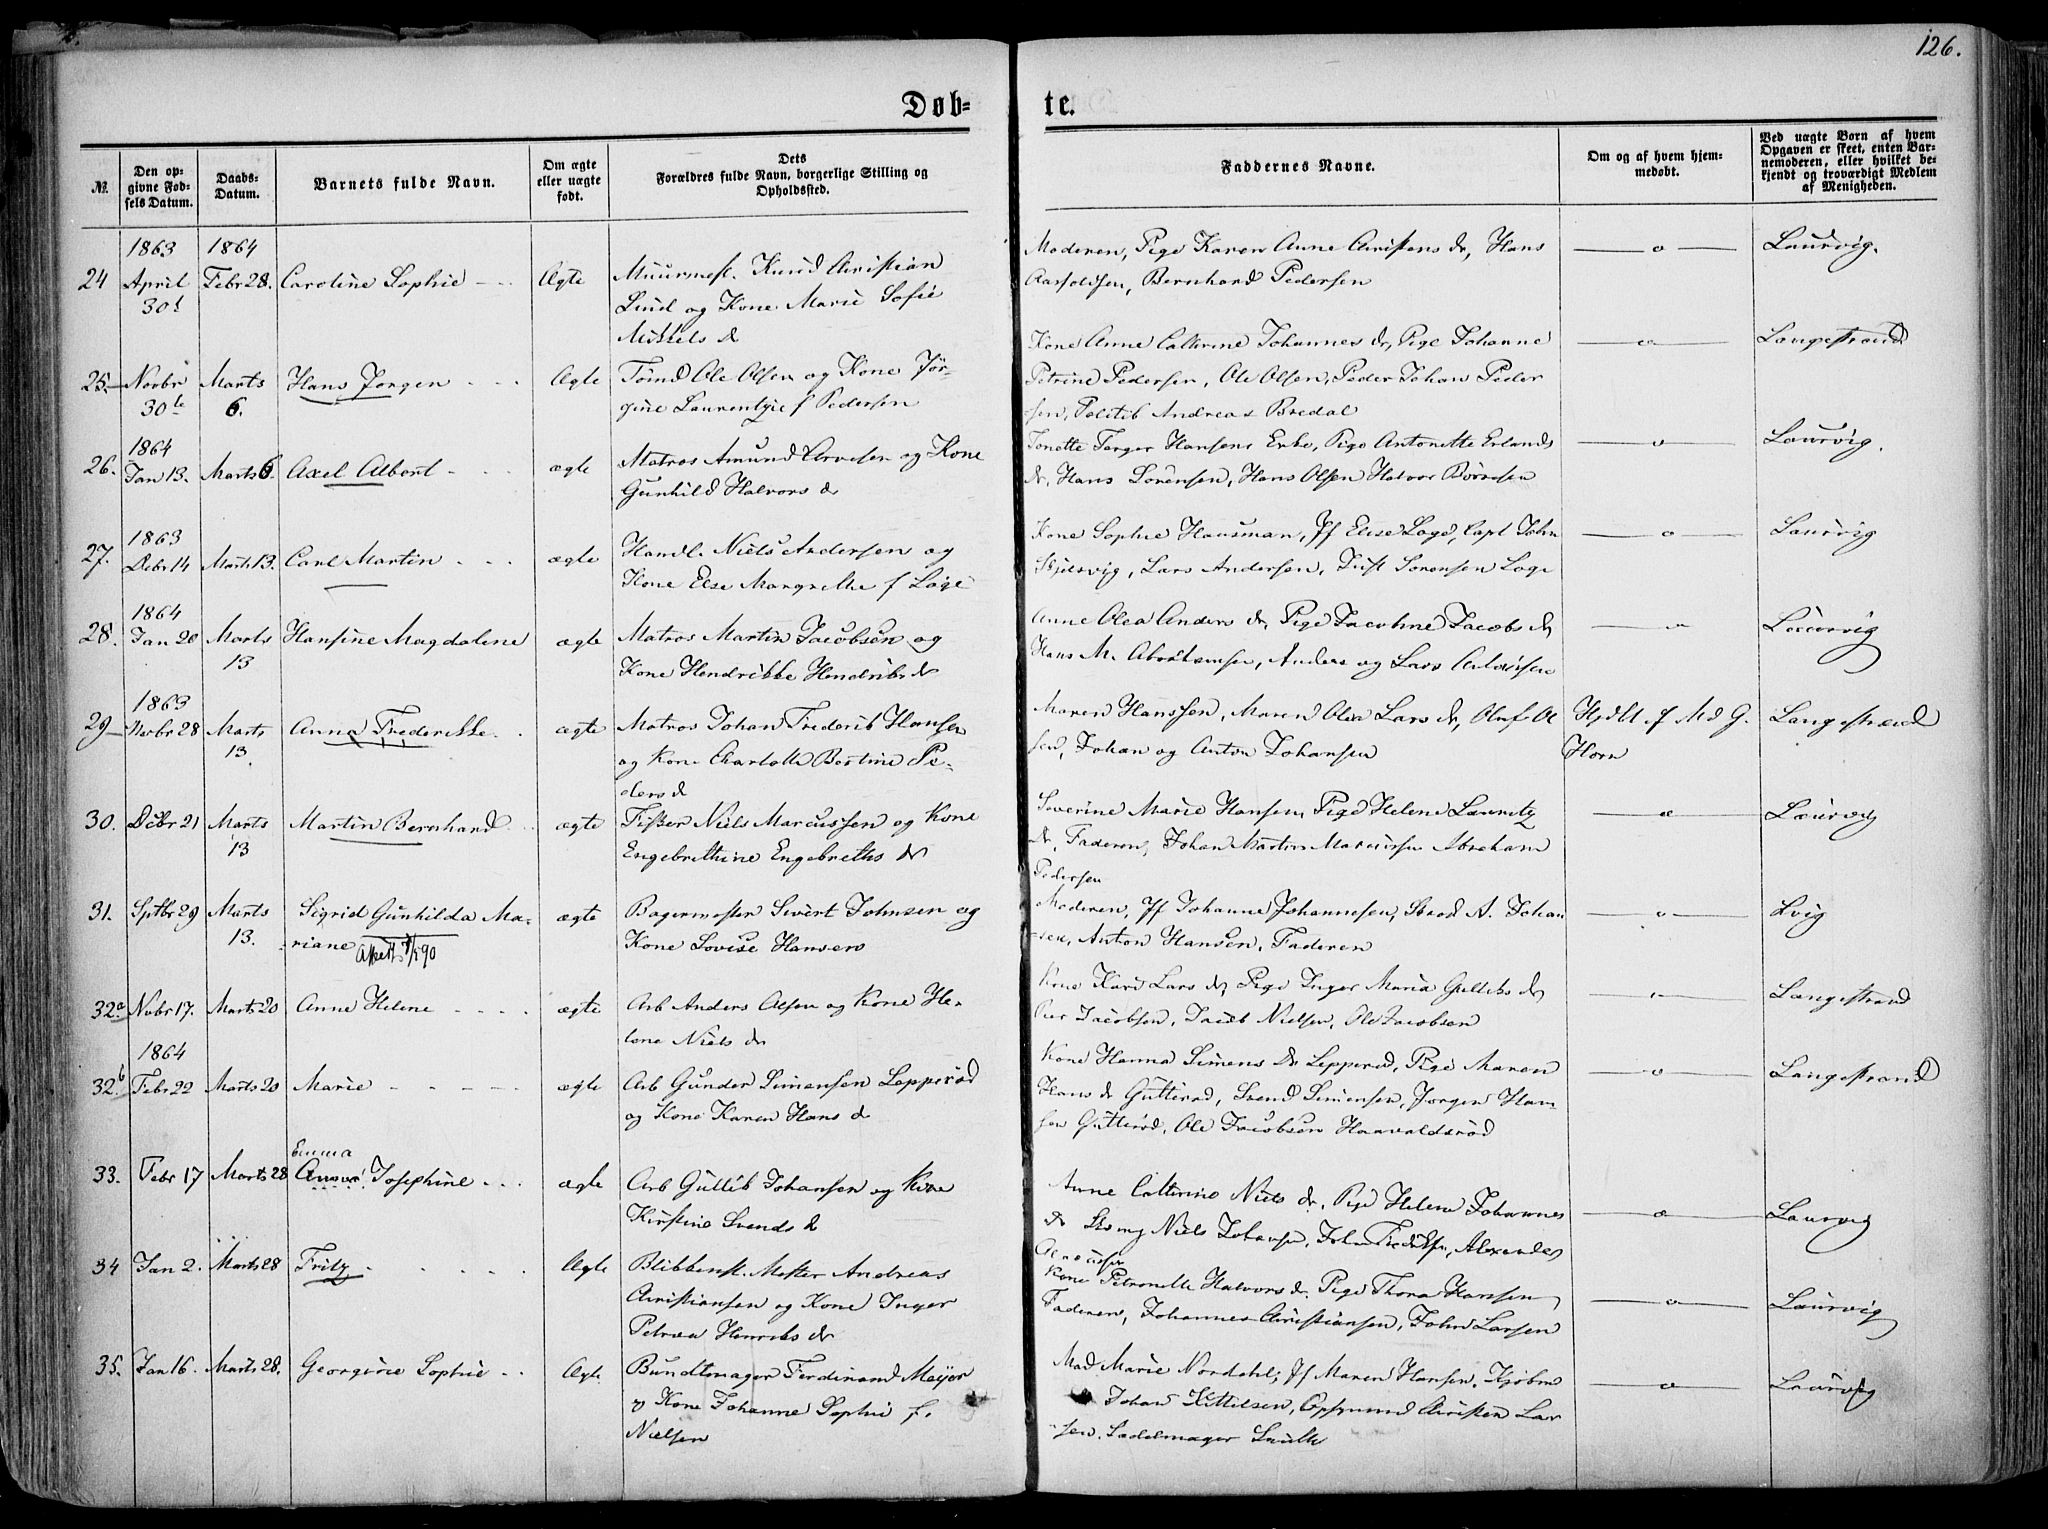 126.
Døb-
te.
№.
Den op-
givne Fød-
sels Datum.
Daabs-
Datum.
Barnets fulde Navn.
Om ægte
eller uægte
født.
Dets
Forældres fulde Navn, borgerlige Stilling og
Opholdssted.
Faddernes Navne.
Om og af hvem hjem-
medøbt.
Ved uægte Børn af hvem
Opgaven er skeet, enten Bar-
nemoderen, eller hvilket be-
kjendt og troværdigt Medlem
af Menigheden.
1863 1864
24 April Febr 28. Caroline Sophie Ægte Muurmest. Knud Christian
30 Lind og Kone Marie Sofie
Mikkels d
Moderen, Pige Karen Anne Christens dr, Hans
Bernhard Pedersen
Laurvig.
25. Novbr Marts Hans Jørgen Ægte Tømd Ole Olsen og Kone Jør-
30te 6. gine Laurentzie f Pedersen
Kone Anne Cathrine Johannes dr, Pige Johanne
Petrine Pedersen, Ole Olsen, Peder Johan Peder
sen, Politib Andreas Bredal
Langestrand
1864
26. Jan 13. Marts 6. Axel Albert ægte Matros Amund Arvesen og Kone
Gunhild Halvors d
Tonette Torger Hansens Enke, Pige Antonette Erlands
dr, Hans Sørensen, Hans Olsen Halvor Børresen
Laurvig.
1863
27. Debr 14 Marts 13. Carl Martin ægte Handl. Niels Andersen og
Kone Else Margrethe f Lage
Kone Sophie Hausman, Jf Elise Lage, Capt John
Lars Andersen, Sørensen Lage
Laurvig
1864
28. Jan 20 Marts Hansine Magdalene ægte Matros Martin Jacobsen og
13 Kone Hendrikke Hendriks d
Anne Olea Anders dr, Pige Jacobine Jacobs d
Hans M. Anders og Lars
Laurvig
1863
29 Novbr 28 Marts Anna Frederikke ægte Matros Johan Frederik Hansen
13. og Kone Charlotte Bertine Pe-
ders d
Maren Hanssen, Maren Olea Lars dr, Oluf Ol
sen, Johan og Anton Johansen
Hjdbt f M d G.
Horn
Langestrand
30. Debr 21 Marts Martin Bernhard ægte Fisker Niels Marcussen og Kone
13 Engebrethine Engebreths dr
Severine Marie Hansen, Pige Helene Lauritz
dr, Faderen, Johan Martin Marcussen Abraham
Pedersen
Laurvig
31. Sptbr 29 Marts Sigrid Gunhilda Ma- ægte Bagermester Sivert Johnsen og
13. riane Kone Lovise Hansen
Moderen, Jf Johanne Johannesen, A. Johan
sen, Anton Hansen, Faderen
Lvig
32a. Nvbr 17. Marts 20 Anne Helene ægte Arb Anders Olsen og Kone He-
lene Niels dr
Kone Kari Lars dr, Pige Inger Maria Gulliks dr
Per Jacobsen, Jacob Nielsen, Ole Jacobsen
Langestrand
1864
32b. Febr 22 Marts 20 Marie ægte Arb Gunder Simensen Lepperød
og Kone Karen Hans d
Kone Hanna Simens Dr Lepperød, Pige Maren
Hans dr Gutterød, Svend Simensen, Jørgen Han-
sen Gutterød, Ole Jacobsen Haavaldsrød
Langestrand
Emma
33. Febr 17 Marts 28 Anna Josephine ægte Arb Gullik Johansen og Kone
Kirstine Svends d
Anne Cathrine Niels dr, Pige Helene Johannes
dr Niels Johansen, John Fredriksen, Alexander
Laurvig
34 Jan 2. Marts 28 Fritz Ægte Blikkensl. Mester Andreas
Christiansen og Kone Inger
Petrea Henriks dr
Kone Petronelle Halvors dr, Pige Thora Hansen
Faderen, Johannes Christiansen, John Larsen
Laurvig
35. Jan 16. Marts 28. Georgine Sophie Ægte Bundtmager Ferdinand Meyer
og Kone Johanne Sophie f.
Nielsen
Mad Marie Nordahl, Jf Maren Hansen, Kjøbm
Johan Kittilsen, Christen Lar
sen, Sadelmager
Laurvig